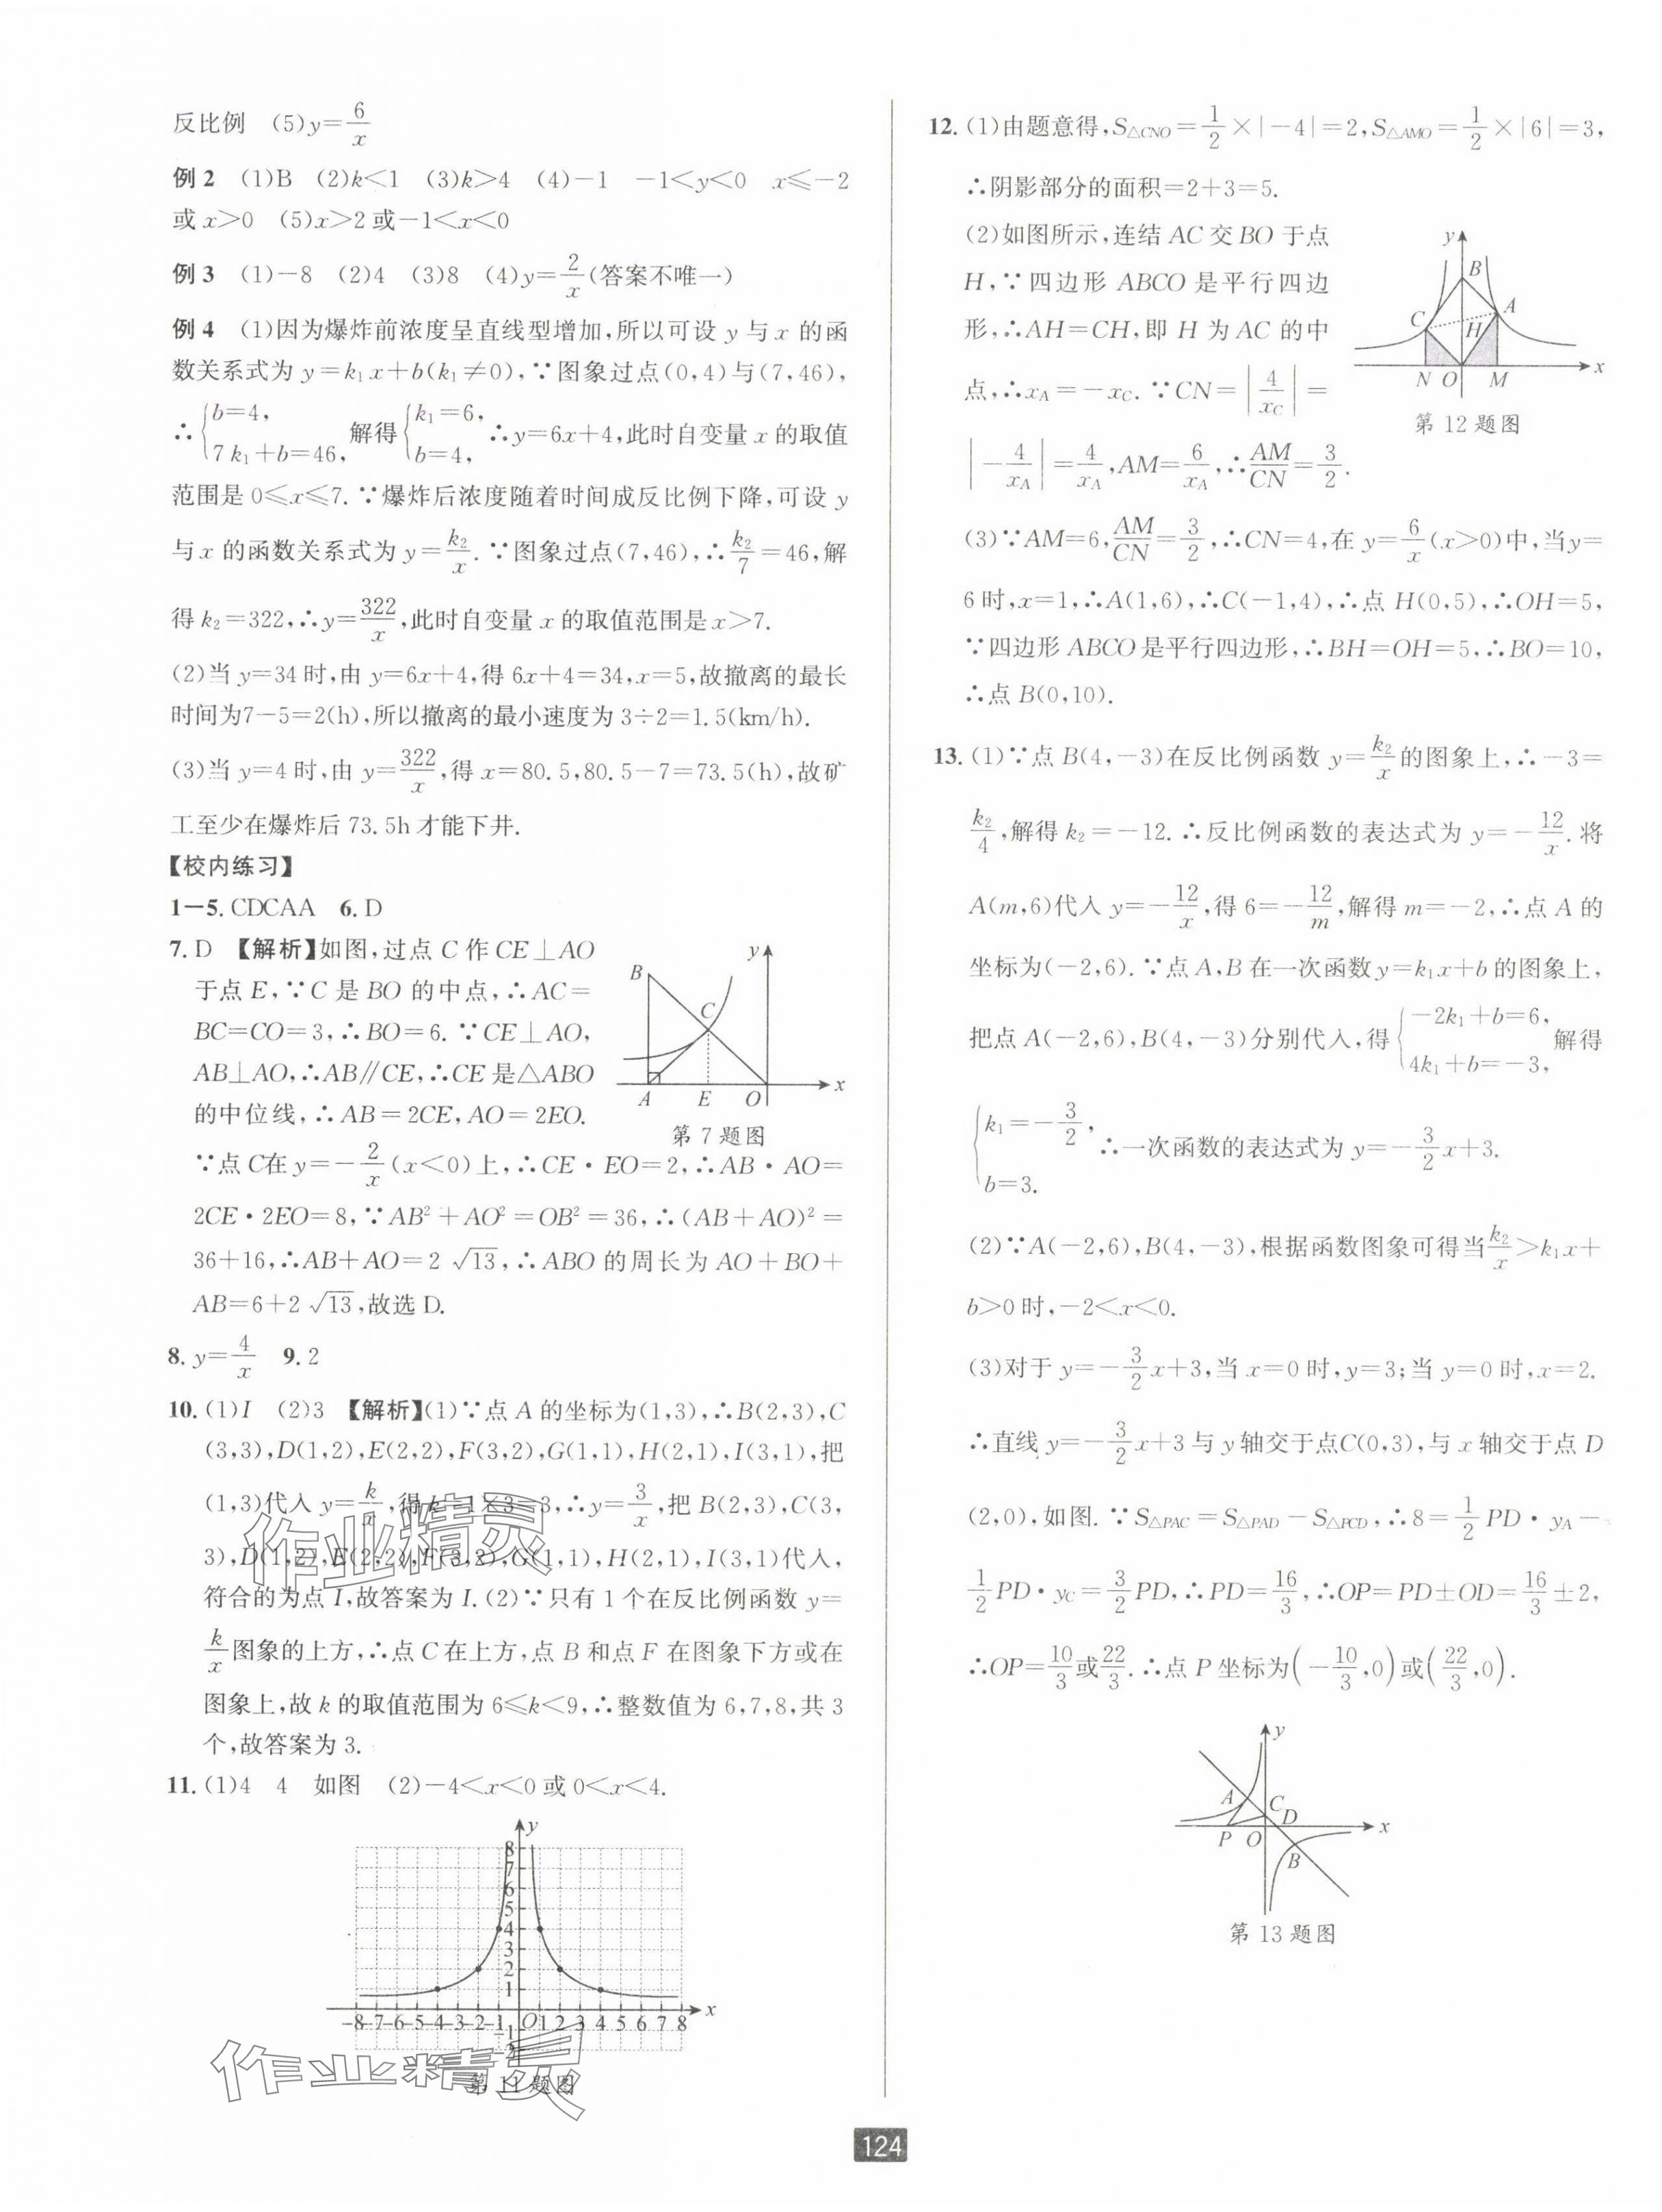 反比例 (5)y=6/x
例2 (1)B (2)k<1 (3)k>4 (4)-1 -1<y<0 x≤-2
或x>0 (5)x>2或-1<x<0
例3 (1)-8 (2)4 (3)8 (4)y=2/x(答案不唯一)
例4 (1)因为爆炸前浓度呈直线型增加,所以可设y与x的函
数关系式为y=k₁x+b(k₁≠0),∵图象过点(0,4)与(7,46),
∴{b=4, 7k₁+b=46, 解得{k₁=6, b=4, ∴y=6x+4,此时自变量x的取值
范围是0≤x≤7.∵爆炸后浓度随着时间成反比例下降,可设y
与x的函数关系式为y=k₂/x.∵图象过点(7,46),∴k₂/7=46,解
得k₂=322,∴y=322/x,此时自变量x的取值范围是x>7.
(2)当y=34时,由y=6x+4,得6x+4=34,x=5,故撤离的最长
时间为7-5=2(h),所以撤离的最小速度为3÷2=1.5(km/h).
(3)当y=4时,由y=322/x,得x=80.5,80.5-7=73.5(h),故矿
工至少在爆炸后73.5h才能下井.
【校内练习】
1-5. CDCAA 6. D
7. D 【解析】如图,过点C作CE⊥AO
于点E,∵C是BO的中点,∴AC=
BC=CO=3,∴BO=6.∵CE⊥AO,
AB⊥AO,∴AB∥CE,∴CE是△ABO
的中位线,∴AB=2CE,AO=2EO.
y
B
C
A E O x
第7题图
∵点C在y=-2/x(x<0)上,∴CE·EO=2,∴AB·AO=
2CE·2EO=8,∵AB²+AO²=OB²=36,∴(AB+AO)²=
36+16,∴AB+AO=2√13,∴ABO的周长为AO+BO+
AB=6+2√13,故选D.
8. y=4/x 9. 2
10. (1)I (2)3 【解析】(1)∵点A的坐标为(1,3),∴B(2,3),C
(3,3),D(1,2),E(2,2),F(3,2),G(1,1),H(2,1),I(3,1),把
(1,3)代入y=k/x,得k=1×3=3,∴y=3/x,把B(2,3),C(3,
3),D(1,2),E(2,2),F(3,2),G(1,1),H(2,1),I(3,1)代入,
符合的为点I,故答案为I.(2)∵只有1个在反比例函数y=
k/x图象的上方,∴点C在上方,点B和点F在图象下方或在
图象上,故k的取值范围为6≤k<9,∴整数值为6,7,8,共3
个,故答案为3.
作业精灵
11. (1)4 4 如图 (2)-4<x<0或0<x<4.
y
8
7
6
5
4
3
2
1
-8-7-6-5-4-3-2-1 O 1 2 3 4 5 6 7 8 x
-1
-2
第11题图
作业精灵
12. (1)由题意得,S△CNO=1/2×|-4|=2,S△AMO=1/2×|6|=3,
∴阴影部分的面积=2+3=5.
(2)如图所示,连结AC交BO于点
H,∵四边形ABCO是平行四边
形,∴AH=CH,即H为AC的中
点,∴xA=-xC.∵CN=|4/xC|=
|-4/xA|=4/xA,AM=6/xA,∴AM/CN=3/2.
y
B
A
C
H
N O M x
第12题图
(3)∵AM=6,AM/CN=3/2,∴CN=4,在y=6/x(x>0)中,当y=
6时,x=1,∴A(1,6),∴C(-1,4),∴点H(0,5),∴OH=5,
∵四边形ABCO是平行四边形,∴BH=OH=5,∴BO=10,
∴点B(0,10).
13. (1)∵点B(4,-3)在反比例函数y=k₂/x的图象上,∴-3=
k₂/4,解得k₂=-12.∴反比例函数的表达式为y=-12/x.将
A(m,6)代入y=-12/x,得6=-12/m,解得m=-2,∴点A的
坐标为(-2,6).∵点A,B在一次函数y=k₁x+b的图象上,
把点A(-2,6),B(4,-3)分别代入,得{-2k₁+b=6, 4k₁+b=-3, 解得
{k₁=-3/2, b=3. ∴一次函数的表达式为y=-3/2x+3.
(2)∵A(-2,6),B(4,-3),根据函数图象可得当k₂/x>k₁x+
b>0时,-2<x<0.
(3)对于y=-3/2x+3,当x=0时,y=3;当y=0时,x=2.
∴直线y=-3/2x+3与y轴交于点C(0,3),与x轴交于点D
(2,0),如图.∵S△PAC=S△PAD-S△PCD,∴8=1/2PD·yA-
1/2PD·yC=3/2PD,∴PD=16/3,∴OP=PD±OD=16/3±2,
∴OP=10/3或22/3.∴点P坐标为(-10/3,0)或(22/3,0).
y
A C D
P O x
B
第13题图
124